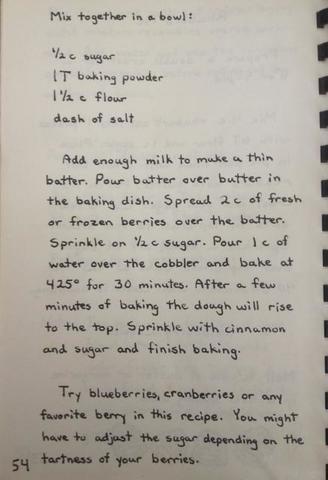 Mix together in a bowl:
1/2 c sugar
1 T baking powder
1 1/2 c flour
dash of salt
Add enough milk to make a thin
batter. Pour batter over butter in
the baking dish. Spread 2 c of fresh
or frozen berries over the batter.
Sprinkle on 1/2 c sugar. Pour 1 c of
water over the cobbler and bake at
425° for 30 minutes. After a few
minutes of baking the dough will rise
to the top. Sprinkle with cinnamon
and sugar and finish baking.
Try blueberries, cranberries or any
favorite berry in this recipe. You might
have to adjust the sugar depending on the
tartness of your berries.
54